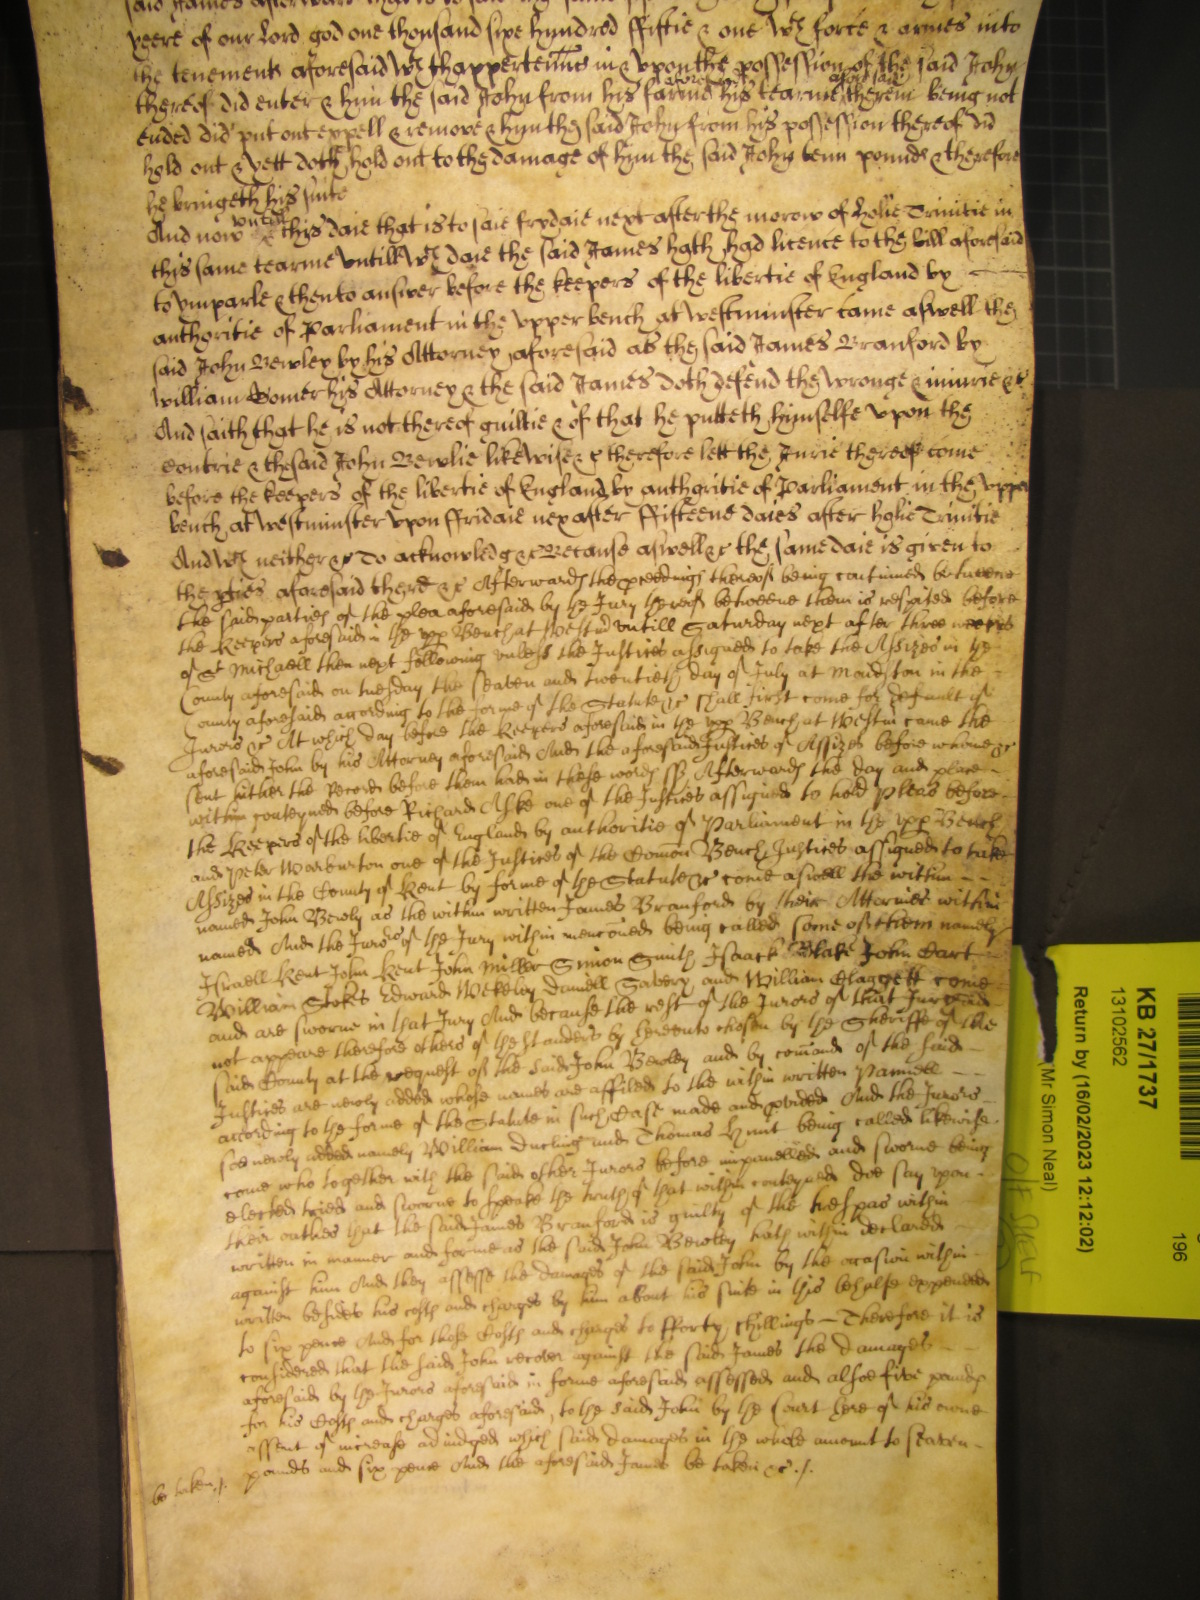 said James afterward that is to saie the same
yeere of our Lord god one thousand sixe hundred fiftie & one wth force & armes into
the tenements aforesaid wth thappertennces in & upon the possession of the said John
thereof did enter & hym the said John from his farme aforesaid his tearme aforesaid therein being not
ended did put out expell & remove & hym the said John from his possession thereof did
hold out & yett doth hold out to the damage of hym the said John tenn pounds & therefore
he bringeth his suite
And now untill this daie that is to saie frydaie next after the morow of holie Trinitie in
this same tearme untill wch daie the said James hath had licence to the bill aforesaid
to ymparle & then to answer before the keepers of the libertie of England by
authoritie of Parliament in the upper bench at Westminster came aswell the
said John Bewley by his Attorney aforesaid as the said James Branford by
William Gomer his Attorney & the said James doth defend the wronge & iniurie &c
And saith that he is not thereof guiltie & of that he putteth himselfe upon the
Contrie & the said John Bewlie likewise &c therefore lett the Jurie thereof come
before the keepers of the libertie of England by authoritie of Parliament in the upper
bench at Westminster upon ffridaie nex after ffifteene daies after holie Trinitie
And wch neither &c To acknowledg &c Because aswell &c the same daie is given to
the pties aforesaid there &c Afterwards the pceedings thereof being continued betweene
the said parties of the plea aforesaid by the Jury thereof betweene them is respited before
the Keepers aforesaid in the upp Bench at Westmr untill Saturday next after three weekes
of St Michaell then next following unless the Justices assigned to take the Assizes in the
County aforesaid on tuesday the seaven and twentieth day of July at Maidston in the
County aforesaid according to the forme of the Statute &c shall first come for default of
Jurors &c At which day before the Keepers aforesaid in the upp Bench at Westm came the
aforesaid John by his Attorney aforesaid And the aforesaid Justices of Assizes before whome &c
sent hither the Record before them had in these words ss Afterwards the day and place
within conteyned before Richard Aske one of the Justices assigned to hold pleas before
the Keepers of the libertie of England by authoritie of Parliament in the upp Bench
and Peter Warburton one of the Justices of the Comon Bench Justices assigned to take
Assizes in the County of Kent by forme of the Statute &c come aswell the within
named John Bewly as the within written James Branford by their Attornies within
named And the Jurors of the Jury within mencioned being called some of them namely
Israell Kent John Kent John Miller Simon Smith Isaack Blake John Cart
William Stokes Edward Wekeley Daniell Savery and William Claggett come
and are sworne in that Jury And because the rest of the Jurors of that Jury did
not appeare therefore others of the standers by hereunto chosen by the Sheriffe of the
said County at the request of the said John Bewley and by comand of the said
Justices are newly added whose names are affiled to the within written Pannell
according to the forme of the Statute in such Case made and pvided And the Jurors
soe newly added namely William Ducling and Thomas Hunt being called likewise
come who together with the said other Jurors before impanelled and sworne being
elected tried and sworne to speake the truth of that within conteyned doe say upon
their oathes that the said James Branford is guilty of the trespas within
written in manner and forme as the said John Bewley hath within declared
against him And they assesse the damages of the said John by the occasion within
written besides his costs and charges by him about his suite in this behalfe expended
to six pence And for those Costs and charges to fforty shillings Therefore it is
considered that the said John recover against the said James the damages
aforesaid by the Jurors aforesaid in forme aforesaid assessed and alsoe five pounds
for his Costs and charges aforesaid, to the said John by the Court here of his owne
assent of increase adiudged which said damages in the whole amount to seaven
pounds and six pence And the aforesaid James be taken &c ./.
be taken ./.
KB 27/1737
13102562
Return by (16/02/2023 12:12:02)
(Mr Simon Neal)
196
O/F SHELF